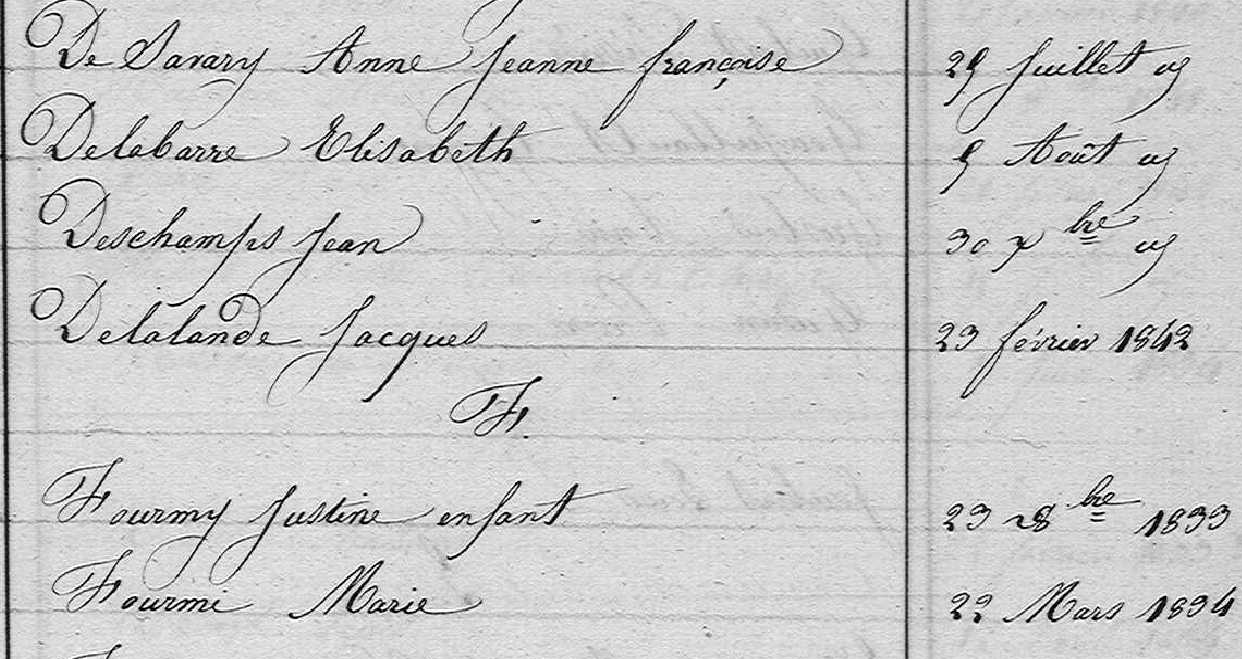 De Savary Anne Jeanne françoise 29 Juillet id
Delabarre Elisabeth 9 Août id
Deschamps Jean 30 Xbre id
Delalande Jacques 23 février 1842
F.
Fourmy Justine enfant 23 8bre 1833
Fourmi Marie 22 Mars 1834